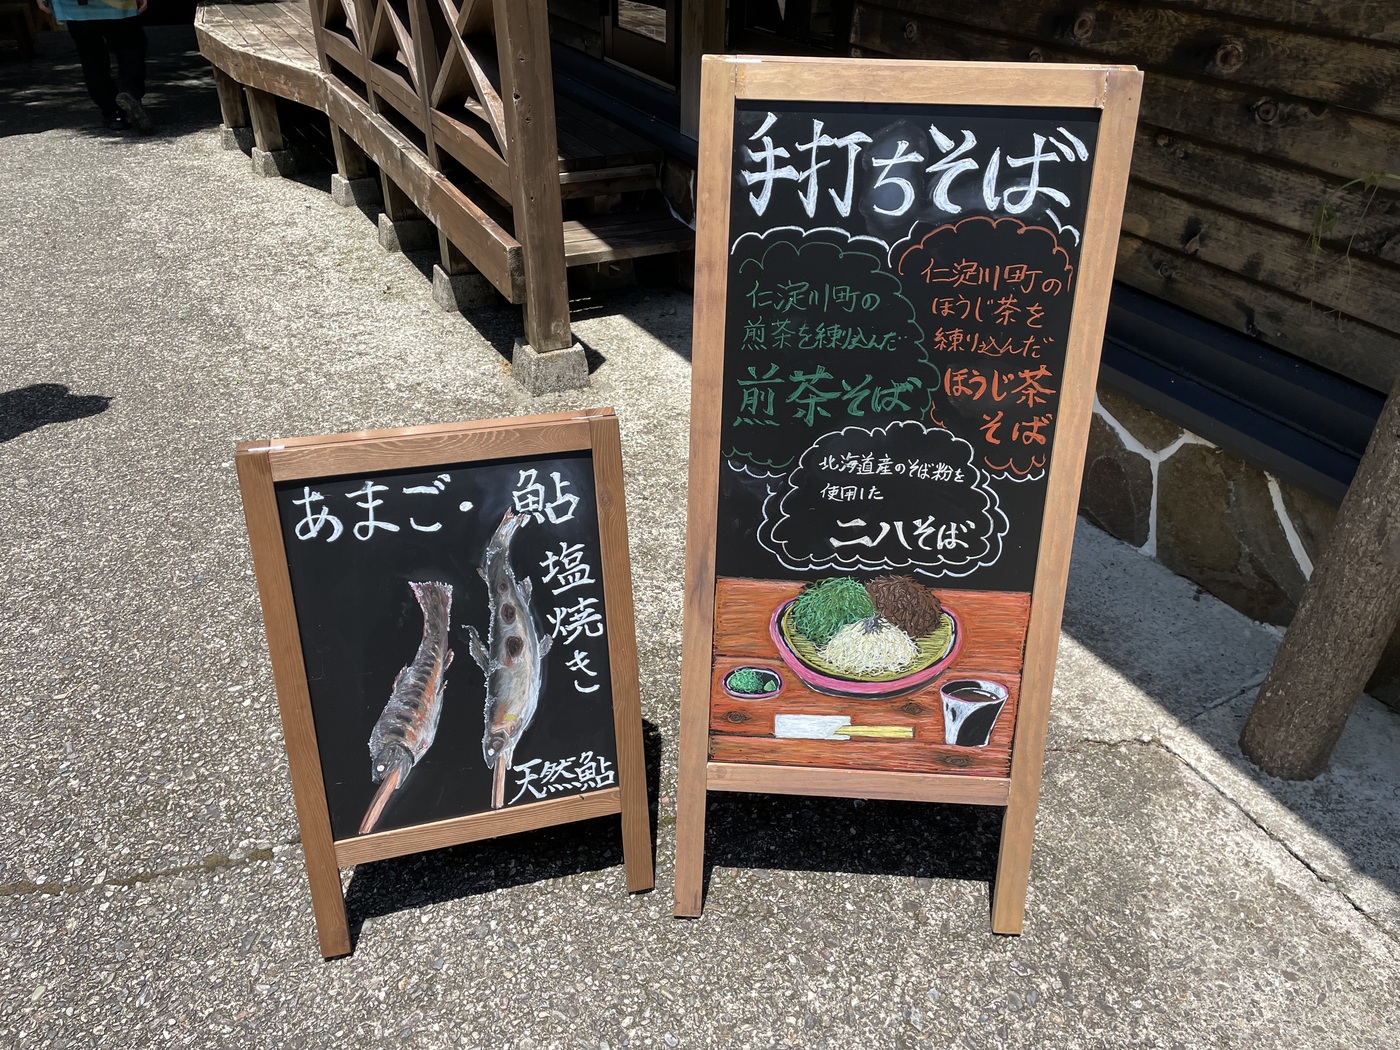 あまご・鮎
塩焼き
天然鮎
手打ちそば
仁淀川町の
煎茶を練り込んだ
煎茶そば
仁淀川町の
ほうじ茶を
練り込んだ
ほうじ茶
そば
北海道産のそば粉を
使用した
二八そば